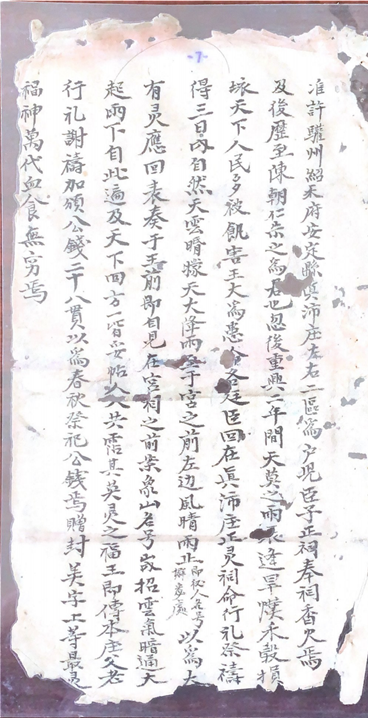 -7-
准許驩州 府安定縣眞沛庄左右二區爲户兒臣子正祠奉祠香火焉
及後歷至陳朝仁宗之爲君也忽後重興二年間天莫之雨 逢旱 禾穀損
天下人民多被飢害王大爲患 各廷臣回在眞沛庄正灵祠命行礼祭禱
得三日内自然天雲暗 天大降雨 于宮之前左边風晴雨止 以爲大
有灵應回表奏于王前即目見在宮祠之前 象山名号 招雲氣暗通天
起雨下自此遍及天下四方一皆妥帖人人共霑其英灵之福王即傳本庄父老
行礼謝禱加頒公錢二十八貫以爲春秋祭祀公錢焉贈封美字上等最灵
福神萬代血食無窮焉